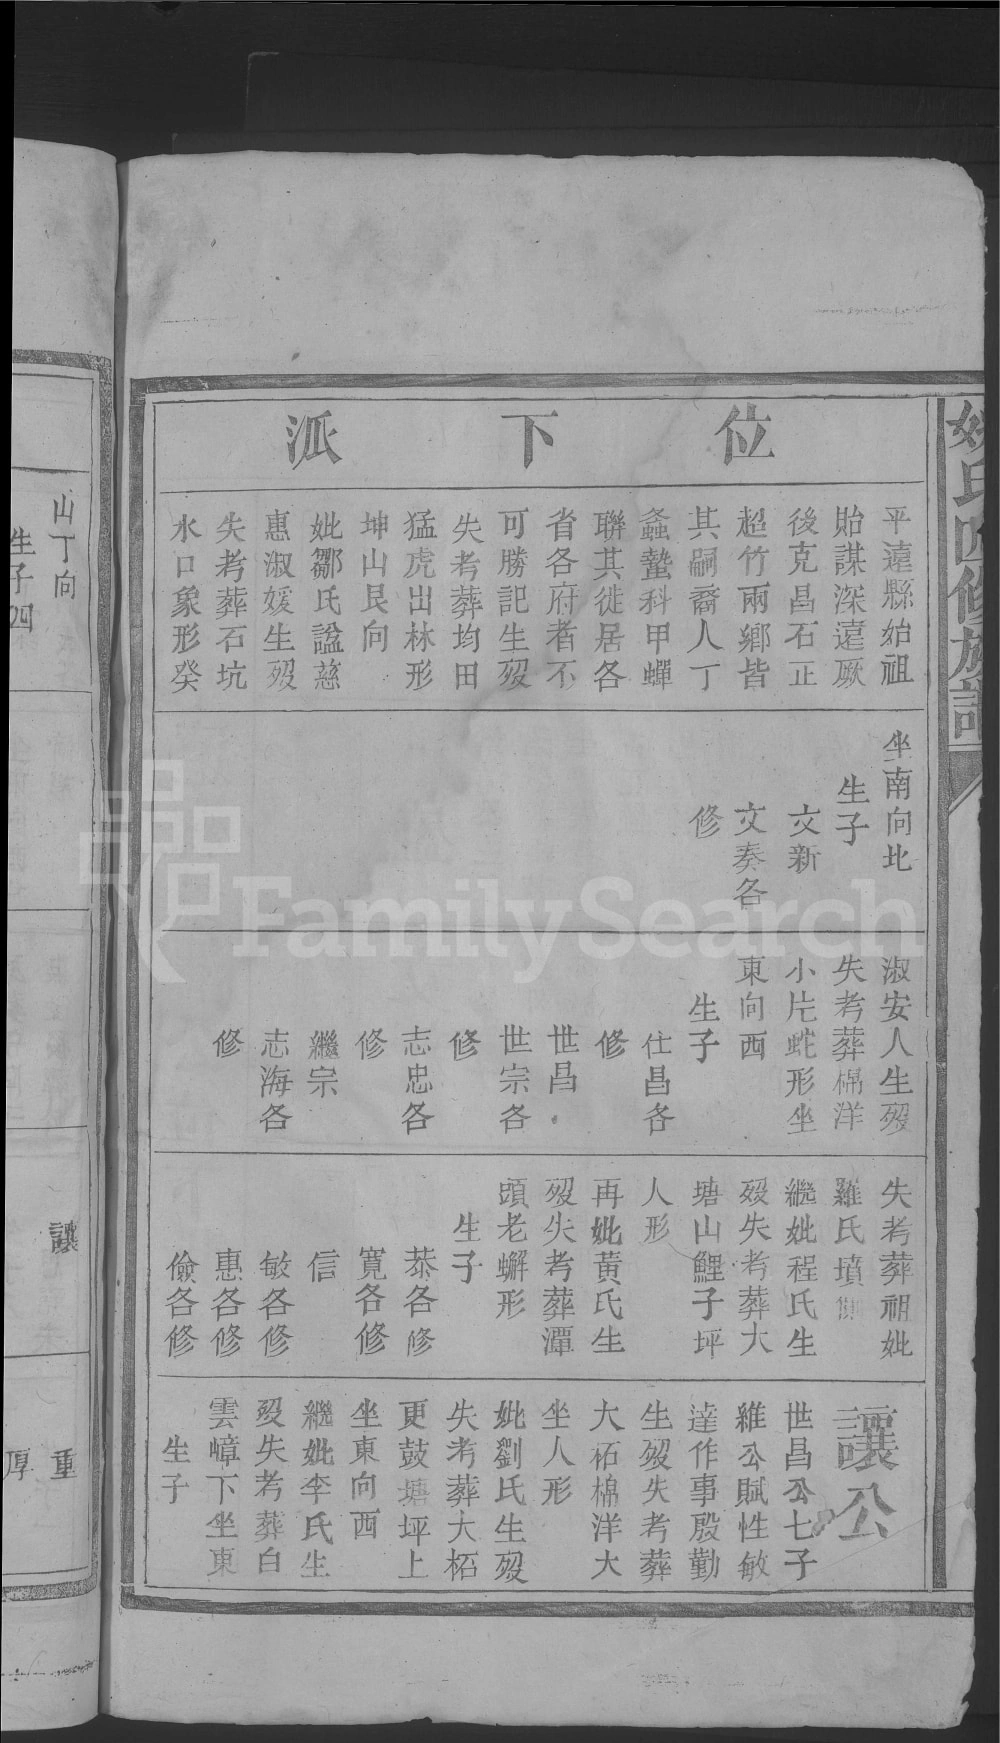 姚氏四修族譜
位下派
平遠縣始祖
貽謀深遠厥
後克昌石正
超竹兩鄉皆
其嗣裔人丁
螽蟄科甲蟬
聯其徙居各
省各府者不
可勝記生歿
失考葬均田
猛虎出林形
坤山艮向
妣鄒氏諡慈
惠淑媛生歿
失考葬石坑
水口象形癸
坐南向北
生子
文新
文奏各
修
淑安人生歿
失考葬棉洋
小片蛇形坐
東向西
生子
仕昌各
修
世昌
世宗各
修
志忠各
修
繼宗
志海各
修
失考葬祖妣
羅氏墳側
繼妣程氏生
歿失考葬大
塘山鯉子坪
人形
再妣黃氏生
歿失考葬潭
頭老蠏形
生子
恭各修
寬各修
信
敏各修
惠各修
儉各修
讓公
世昌公七子
維公賦性敏
達作事殷勤
生歿失考葬
大柘棉洋大
坐人形
妣劉氏生歿
失考葬大柘
更鼓塘坪上
坐東向西
繼妣李氏生
歿失考葬白
雲嶂下坐東
生子
山丁向
生子四
讓
重
厚
FamilySearch